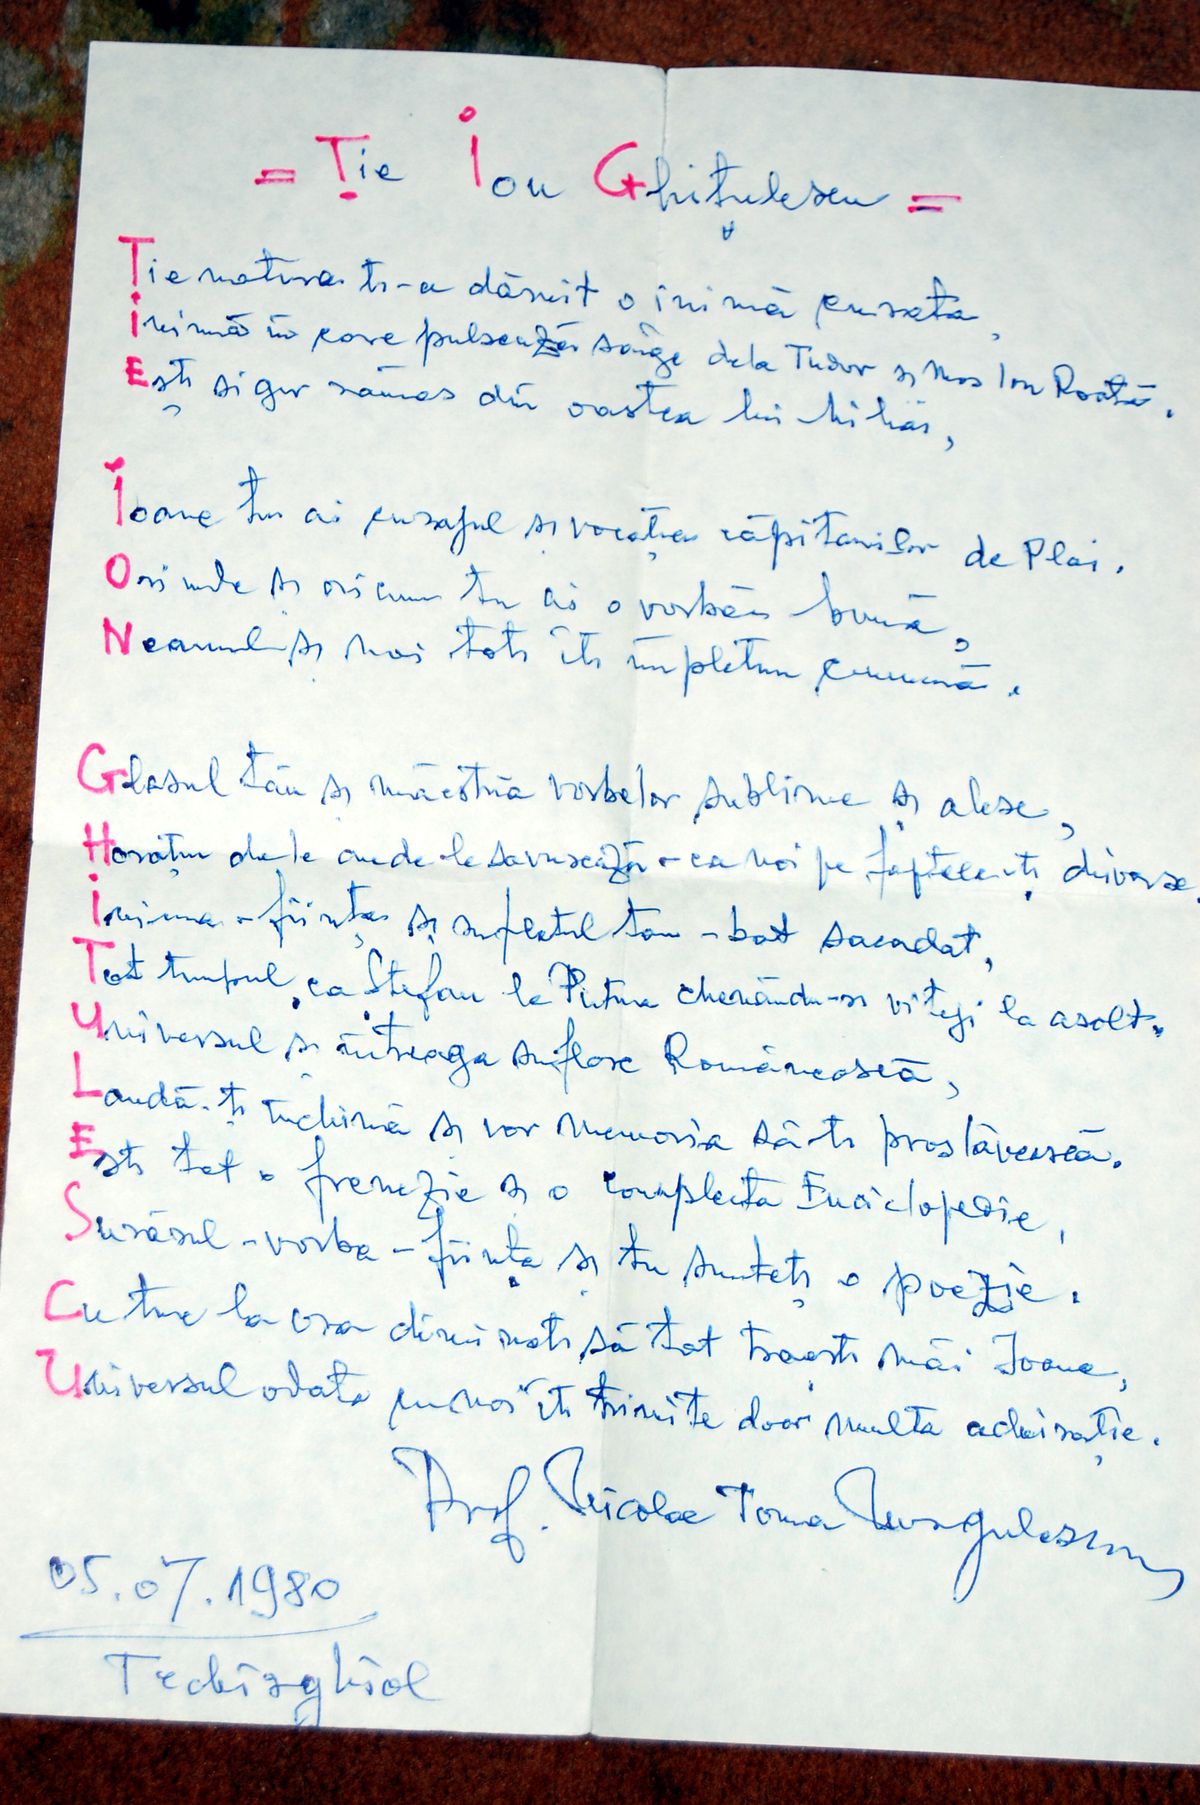 = Ţie Ion Ghiţulescu =
Ţie natura ţi-a dăruit o inimă curata,
Inimă în care pulsează sânge dela Tudor şi Mos Ion Roată.
Eşti sigur rămas din oastea lui Mihai,
Ioane tu ai curajul şi vocaţia căpitanilor de Plai.
Ori unde şi oricum tu ai o vorbă bună,
Neamul şi noi toti îti împletim cunună.
Glasul tău şi măestria vorbelor sublime şi alese,
Horaţiu dela le savurează - ca noi pe faptele-ţi diverse.
Inima - fiinţa şi sufletul tau - bat sacadat,
Tot timpul, ca Ştefan la Putna chemându-si viteji la asalt.
Universul şi întreaga suflare Românească,
Laudă-ţi închină şi vor memoria să-ti proslăvească.
Esti tot o frenezie şi o complecta Enciclopedie,
Surâsul - vorba - fiinţa şi tu sunteţi o poezie.
Cu tine la ora diminetii să tot traeşti măi Ioane,
Universul odata cu noi îti trimite doar multa admiraţie.
Prof. Nicolae Toma Murgulescu
05.07.1980
Techirghiol